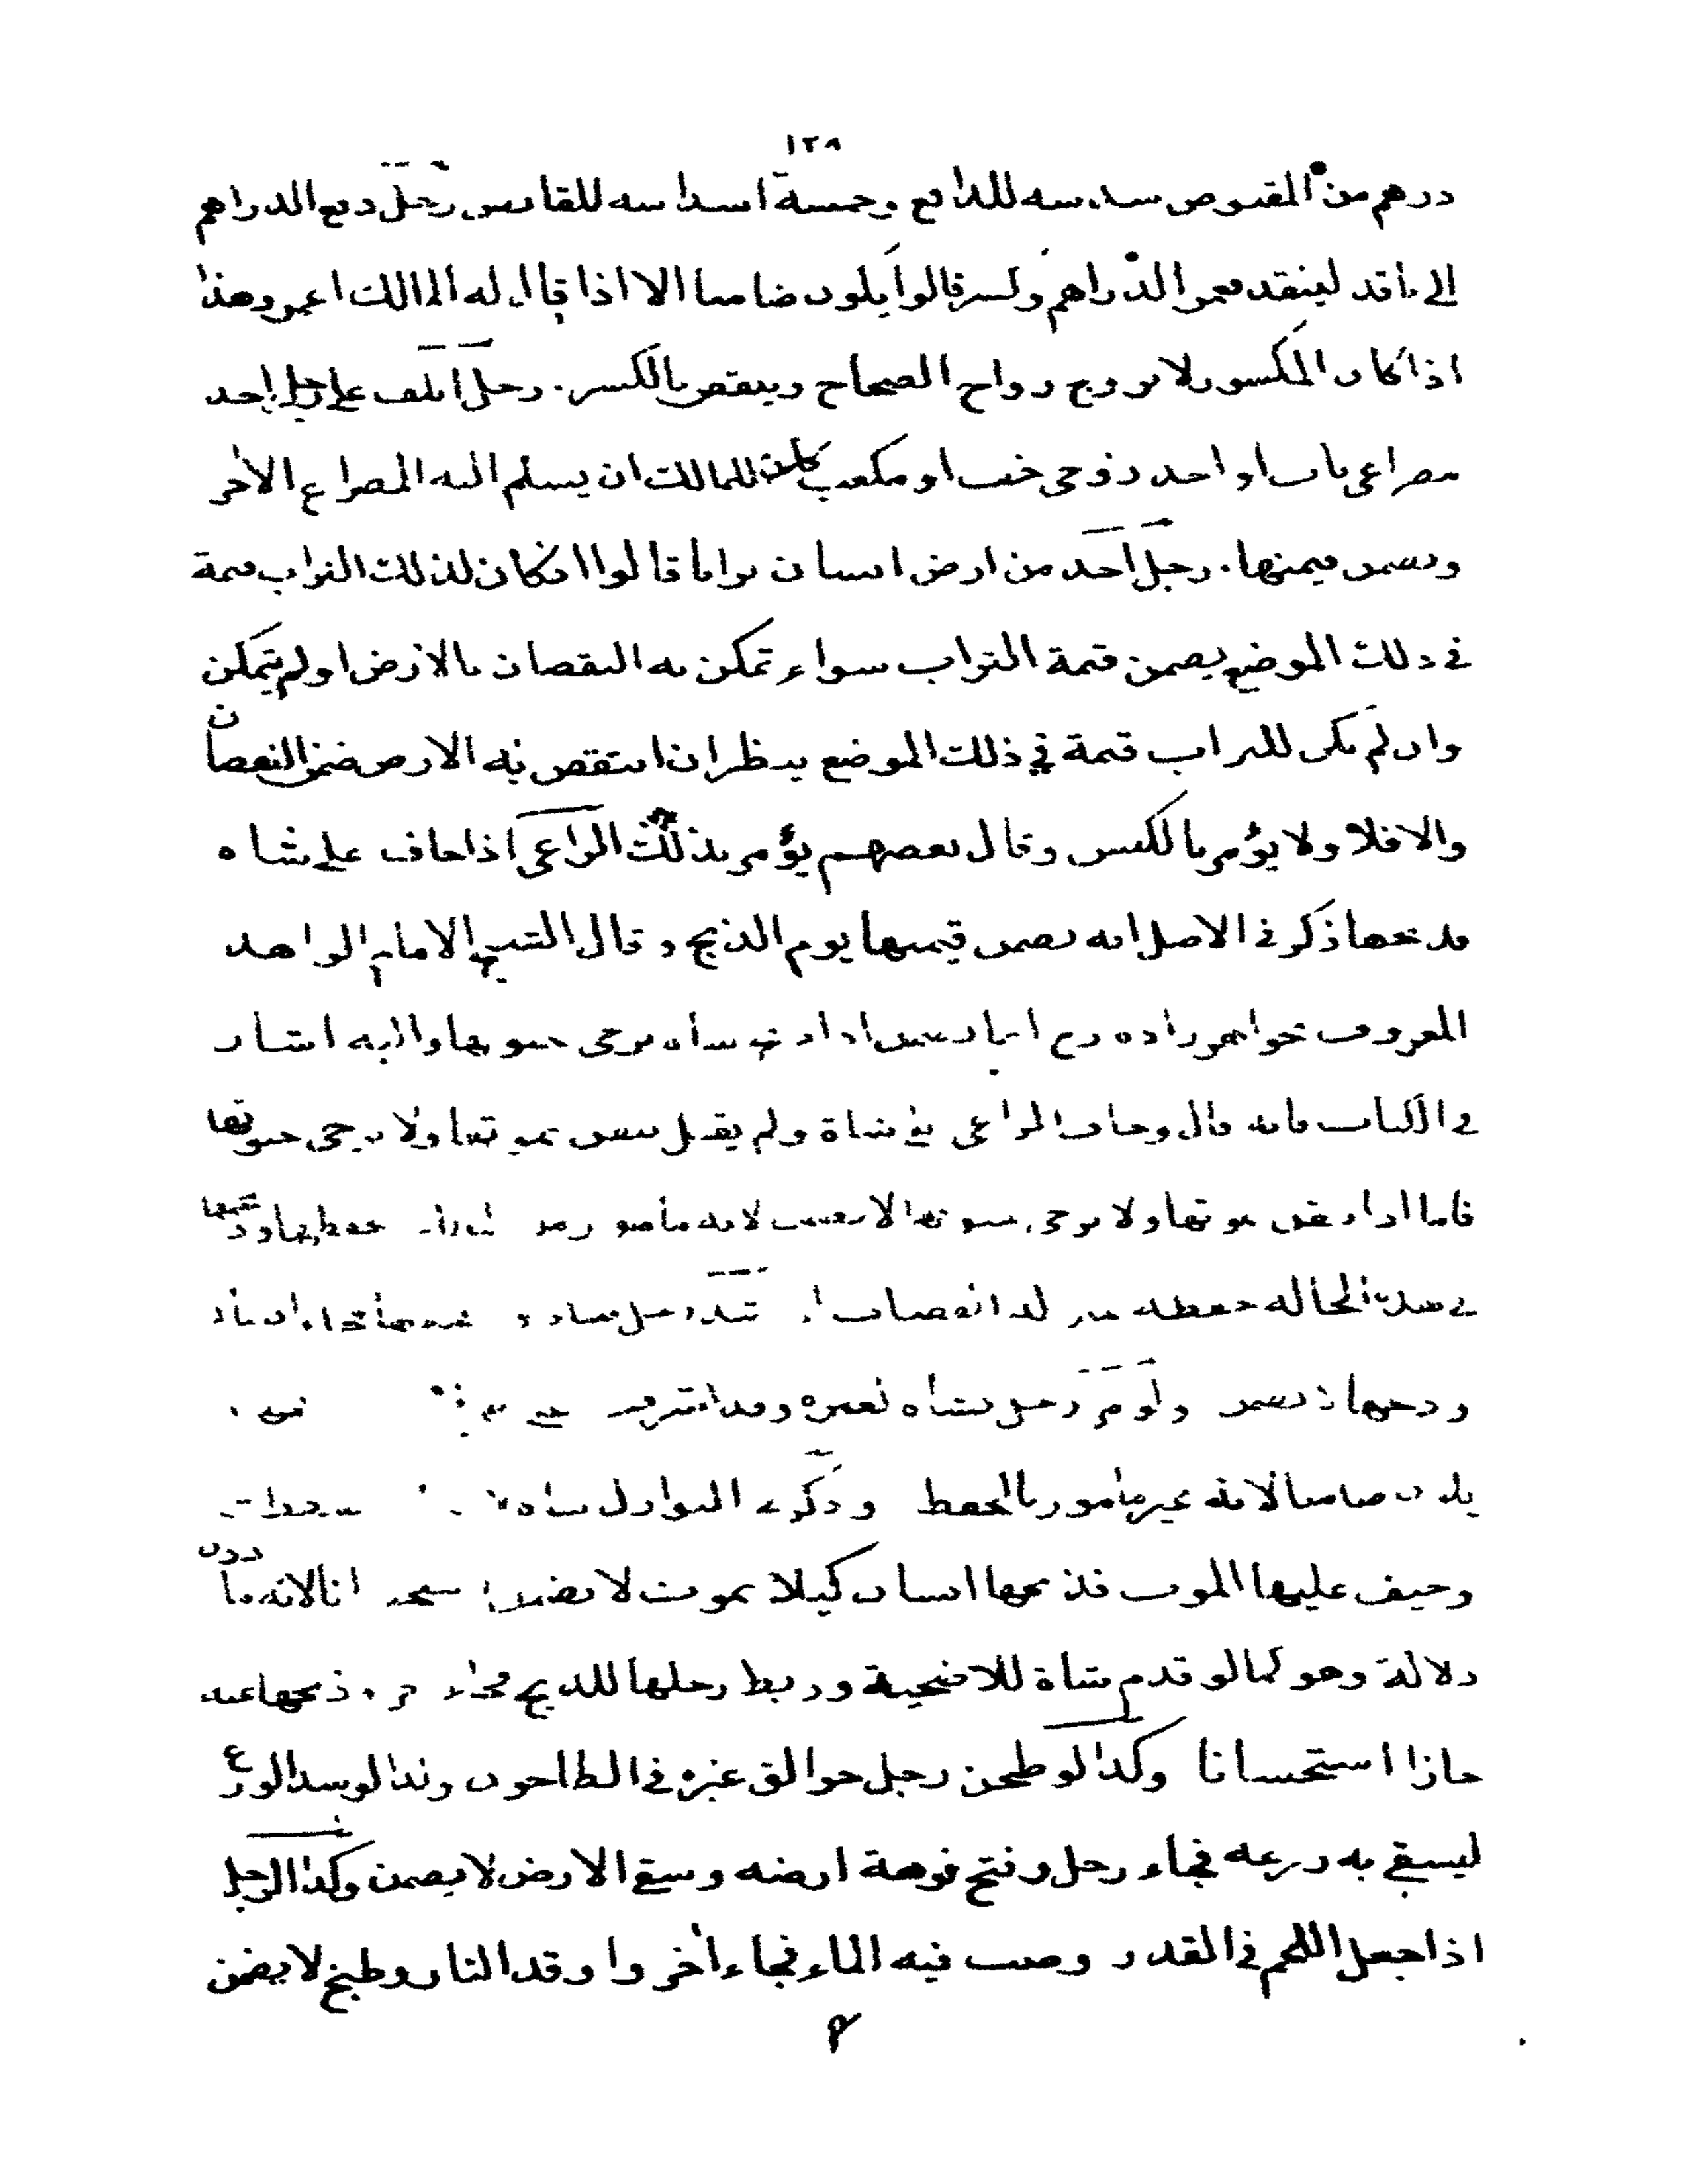 ١٣٨
درهم من المقبوض سدسه للدافع وخمسة اسداسه للقابض رجل دفع الدراهم
الى ناقد لينقد فغمز الدراهم وكسر قالوا يكون ضامنا الا اذا قال له المالك اغمز وهذا
اذا كان المكسور لا يروج رواج الصحاح وينتقص بالكسر. رجل اتلف على رجل احد
مصراعي باب او احد زوجي خف او مكعب كان للمالك ان يسلم اليه المصراع الاخر
ويضمن قيمتها. رجل اخذ من ارض انسان ترابا قالوا ان كان لذلك التراب قيمة
في ذلك الموضع يضمن قيمة التراب سواء تمكن به النقصان بالارض او لم يتمكن
وان لم يكن للتراب قيمة في ذلك الموضع ينظر ان انتقص به الارض ضمن النقصان
والا فلا ولا يؤمر بالكبس وقال بعضهم يؤمر بذلك الراعي اذا خاف على شاه
فذبحها ذكر في الاصل انه يضمن قيمتها يوم الذبح وقال الشيخ الامام الزاهد
المعروف خواهرزاده رح انما يضمن اذا ذبح شاه يرجى حيوتها واليه اشار
في الكتاب فانه قال وخاف الراعي على شاة ولم يقل تيقن بموتها ولا يرجى حيوتها
فاما اذا تيقن موتها ولا يرجى حيوتها لا يضمن لانه مامور حفظها و
في هذه الحالة حفظه
وذبحها لا يضمن ولو مر رجل بشاه لغيره وقد اشرفت
يكون ضامنا لانه غير مامور بالحفظ وذكر في النوازل شاه سقطت
وخيف عليها الموت فذبحها انسان كيلا يموت لا يضمن استحسانا لانه ماذون
دلالة وهو كما لو قدم شاة للاضحية وربط رجلها للذبح فجاء ذبحها عنه
جاز استحسانا وكذا لو طحن رجل جوالق غيره في الطاحون وكذا لو سد الورع
ليسقي به زرعه فجاء رجل وفتح فوهة ارضه وسقى الارض لا يضمن وكذا الرجل
اذا جعل اللحم في القدر وصب فيه الماء فجاء اخر واوقد النار وطبخ لا يضمن